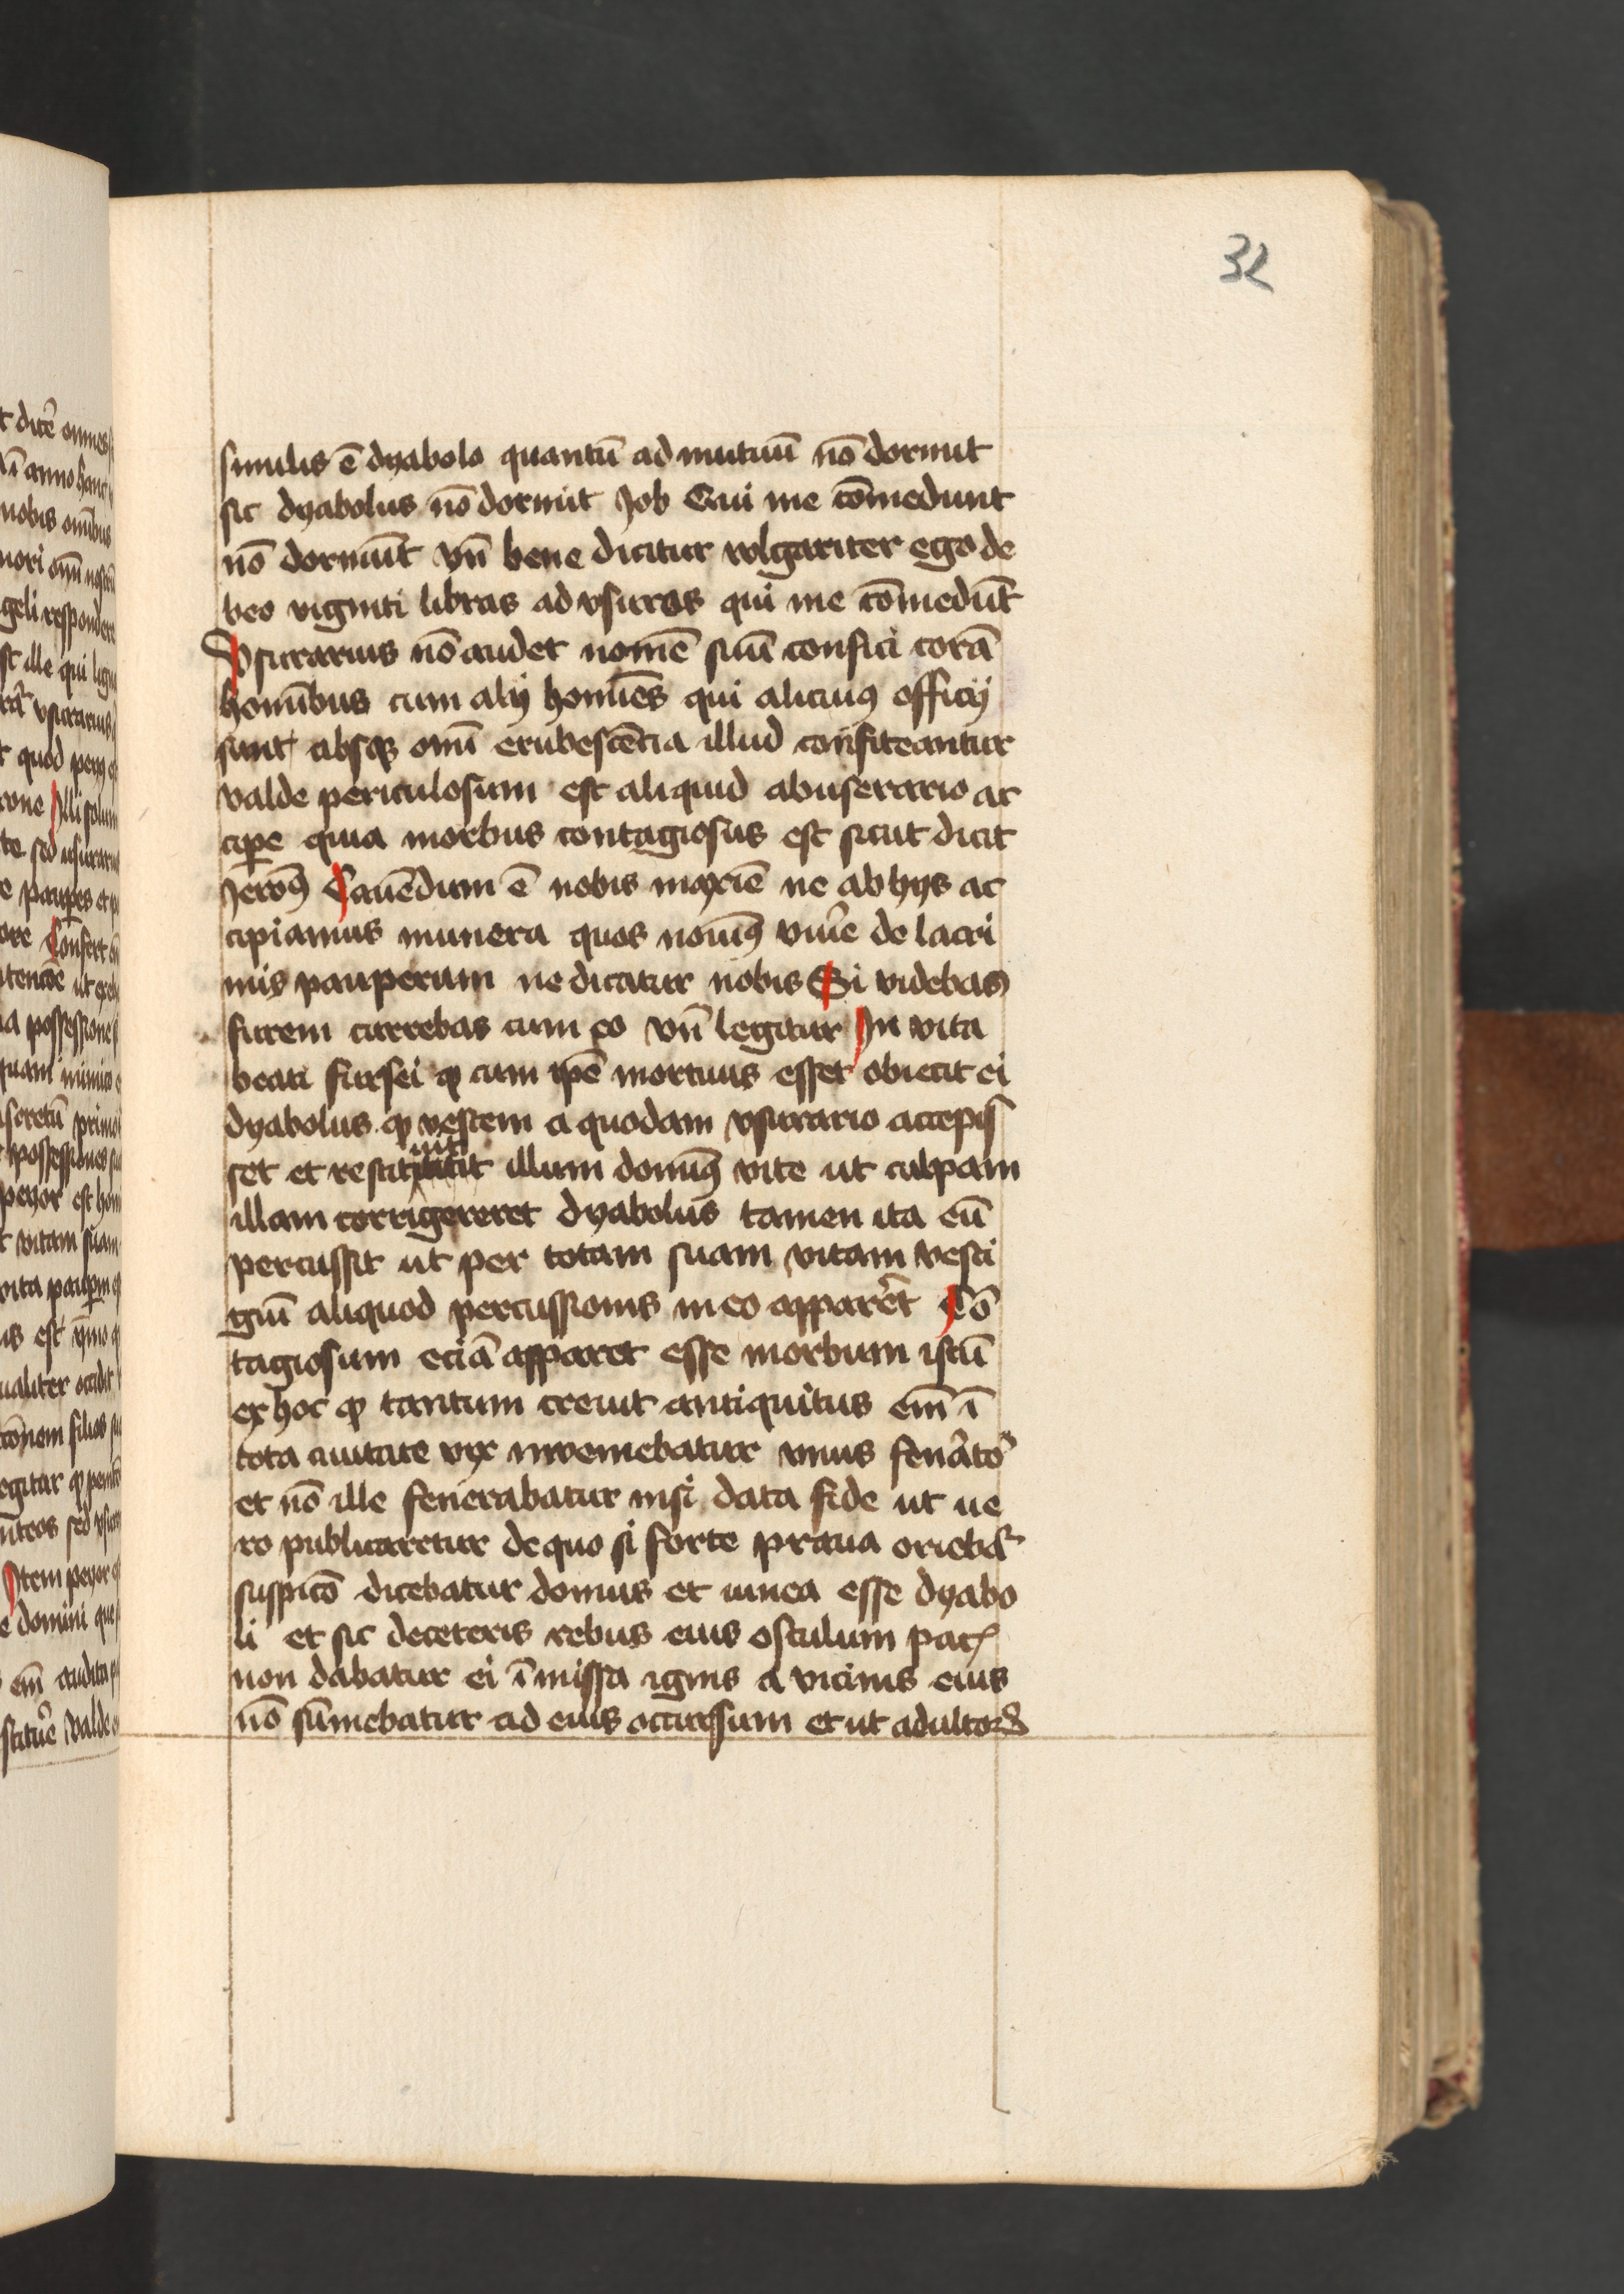 32
similis ē dyabolo quantū ad mutuū nō dormit
sic dyabolus nō dormit Job Qui me cōmedunt
nō dormiūt vn̄ bene dicitur volgariter ego de
beo viginti libras ad vsuras qui me cōmedūt
Vsurarius nō audet nomē suū confici corā
hominībus cum alij hominēs qui alicuiꝯ officij
sunt absqꝫ omī erubescēcia illud confiteantur
valde periculosum est aliquid abuserario ac
cipe̅ quia morbus contagiosus est sicut dicit
Jeroꝯ Cauēdum ē nobis maxīe ne ab hijs ac
cipiamus munera quos nouimꝯ viuēe de lacri
mis pauperum ne dicatur nobis Si videbas
furem currebas cum eo vn̄ legitur In vita
beati fursei ꝙ cum ip̄e mortuus esset obiecit ei
dyabolus ꝙ vestem a quodam vsurario accepis
set et restituit illum dominꝯ vite ut culpam
illam corrigereret dyabolus tamen ita eū
percussit ut per totam suam vitam vesti
giū aliquod percussionis in eo apparēt Cō
tagiosum eciā apparet esse morbum istū
ex hoc ꝙ tantum creuit antiquitus em̄ ī
tota ciuitate vix inveniebatur vnus fenātoʳ
et nō ille fenerabatur nisi data fide ut ue
ro publicaretur de quo si forte praua oriebaʳ
suspicō dicebatur domus et vinea esse dyabo
li et sic deceteris rebus eius osculum pacꝭ
non dabatur ei ī missa ignis a vicinis eius
nō sūmebatur ad eius occurssum et ut adultorꝭ